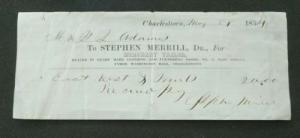 Charlestown, May 1854
Mr L. Adams
To STEPHEN MERRILL, DR., FOR
MERCHANT TAILOR,
DEALER IN READY MADE CLOTHING AND FURNISHING GOODS, NO. 2 MAIN STREET,
UNDER WASHINGTON HALL, CHARLESTOWN
Coat Vest & 20.00
Rec'd Pay
Stephen Merrill